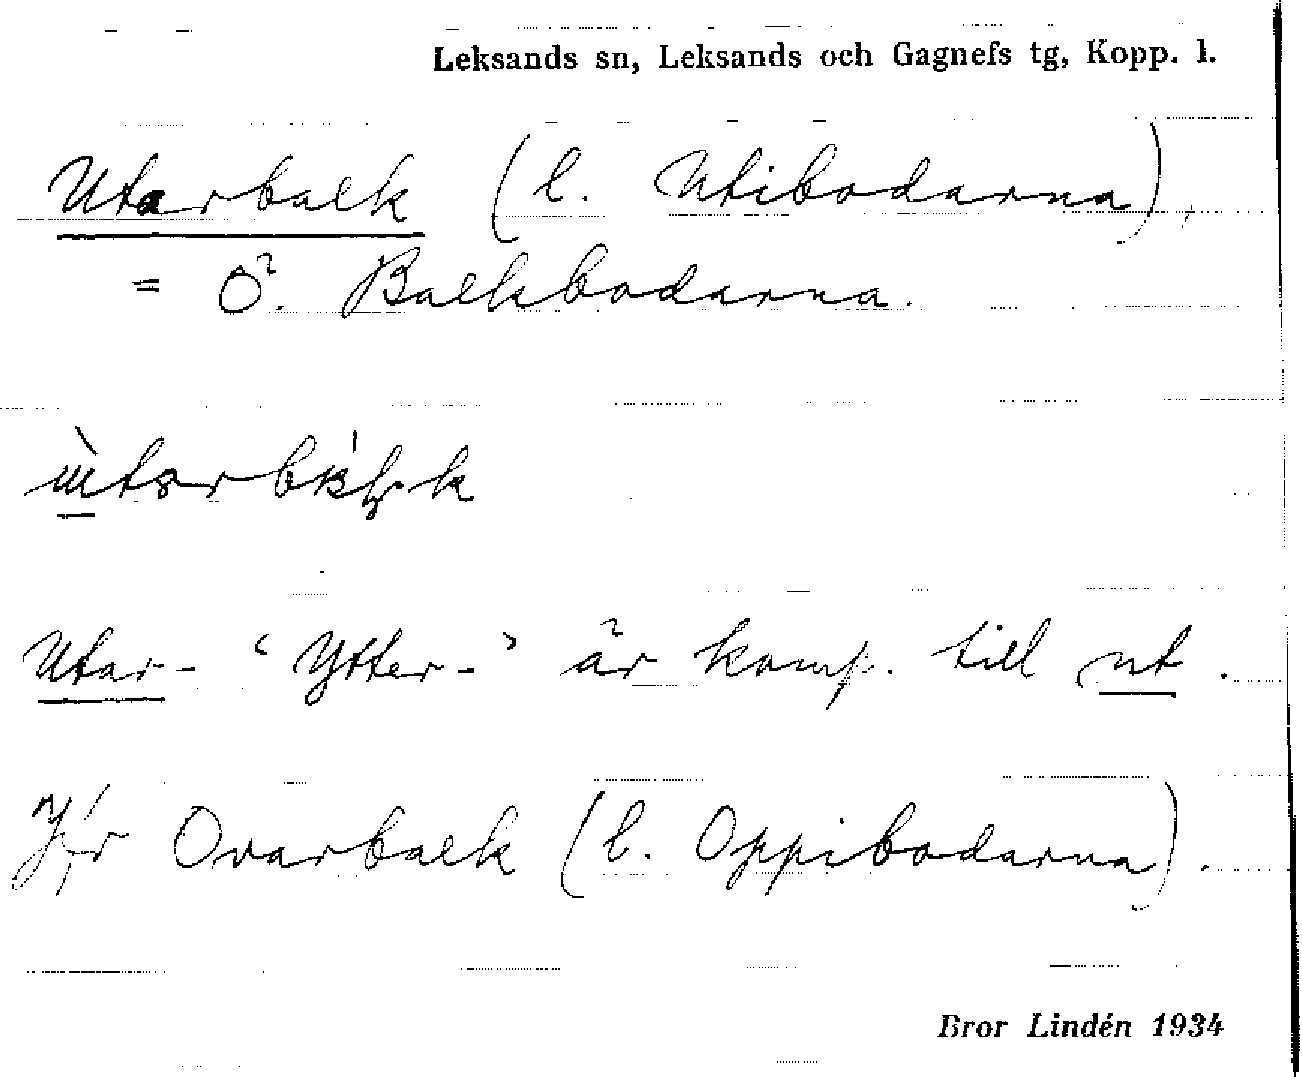 Leksands sn, Leksands och Gagnefs tg, Kopp. l.
Utarbalk (l. Utibodarna),
= Ö. Balkbodarna.
Utar- "Ytter-" är komp. till ut.
Jfr Ovarbalk (l. Oppibodarna).
Bror Lindén 1934